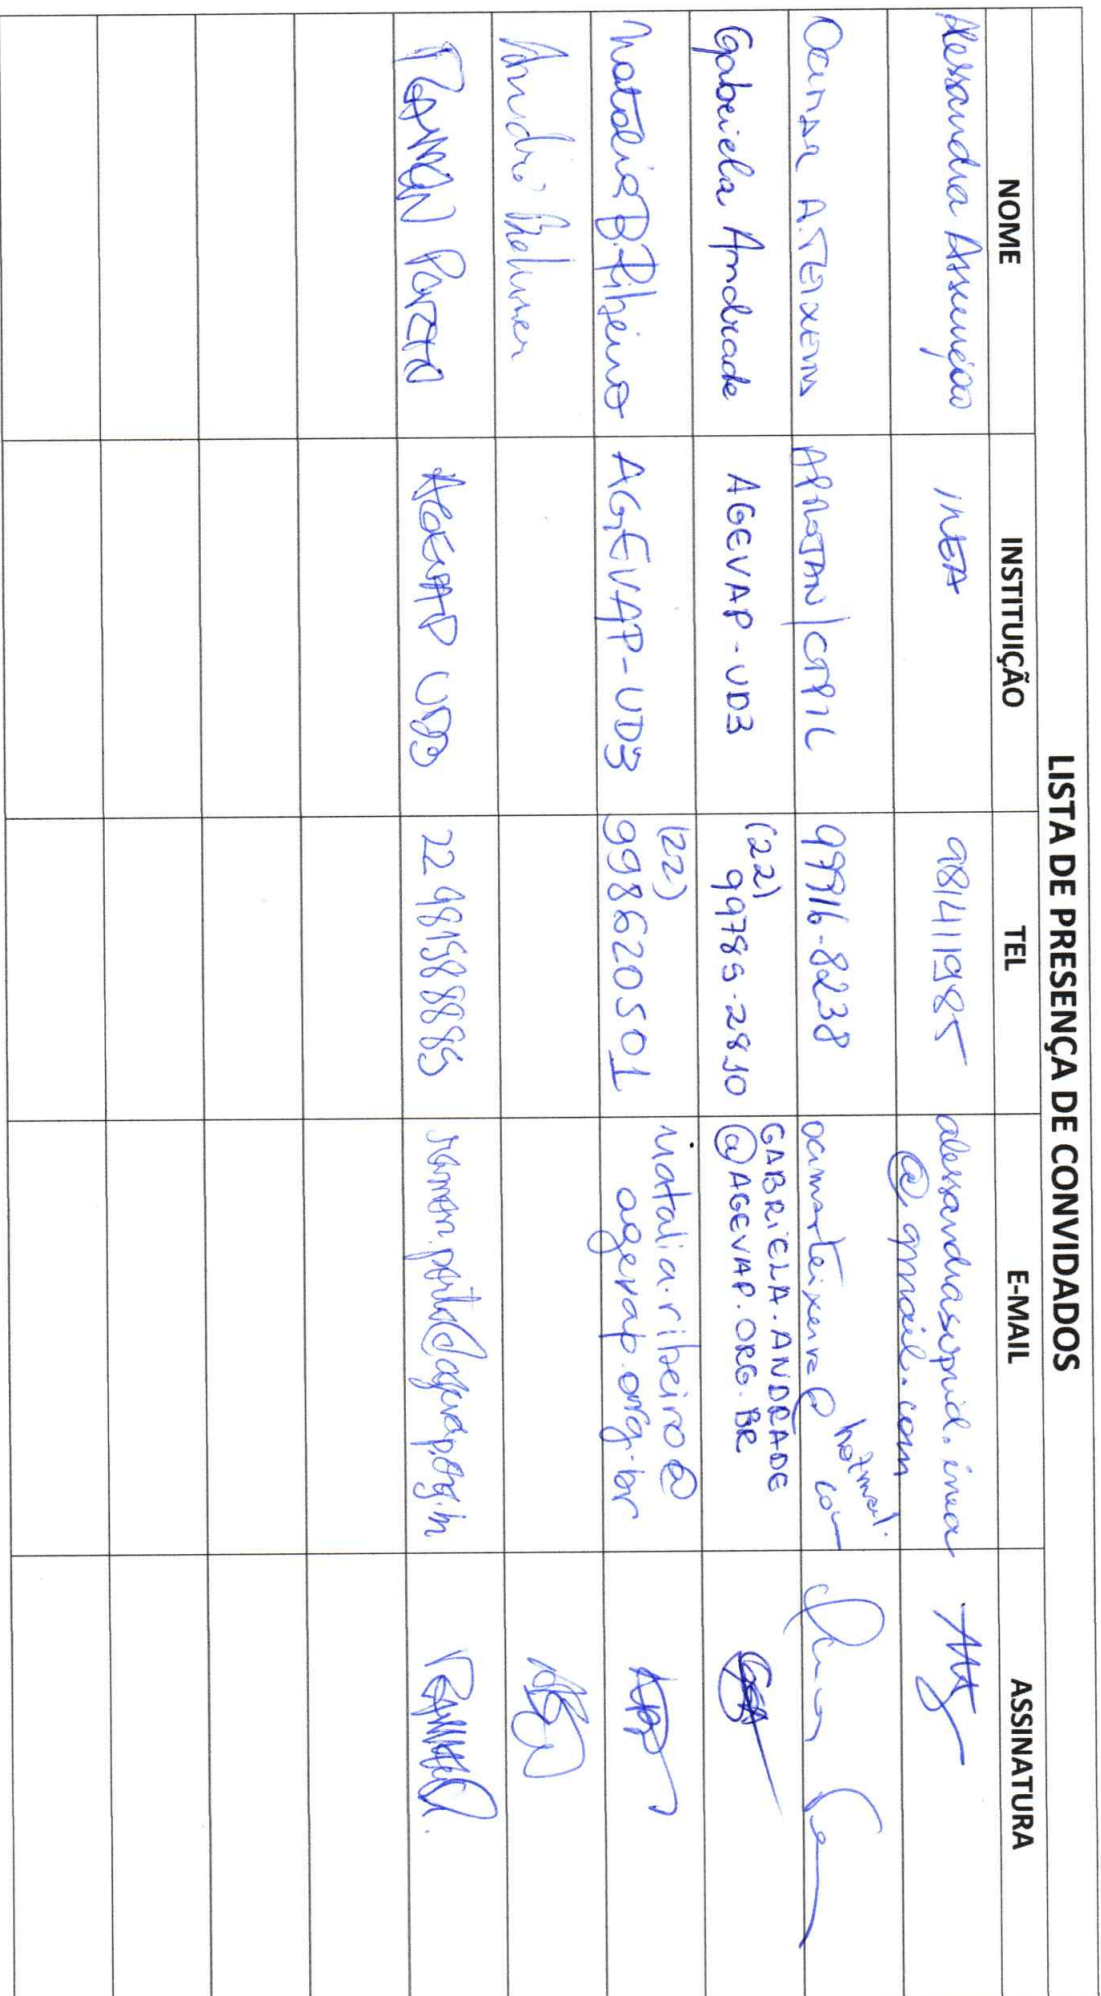 LISTA DE PRESENÇA DE CONVIDADOS
NOME INSTITUIÇÃO TEL E-MAIL ASSINATURA
Alessandra Assunção INEA 981411985 alessandrasuprid.inea
@gmail.com
Ocimar A. Teixeira 99916-8238 ocimarteixeira@hotmail.
com
Gabriela Andrade AGEVAP-UD3 (22)
99789-2810 GABRIELA.ANDRADE
@AGEVAP.ORG.BR
Natalia B. Ribeiro AGEVAP-UD3 (22)
998620501 natalia.ribeiro@
agevap.org.br
André
RAMON PORTO AGEVAP UD3 22 981988885 ramon.porto@agevap.org.br